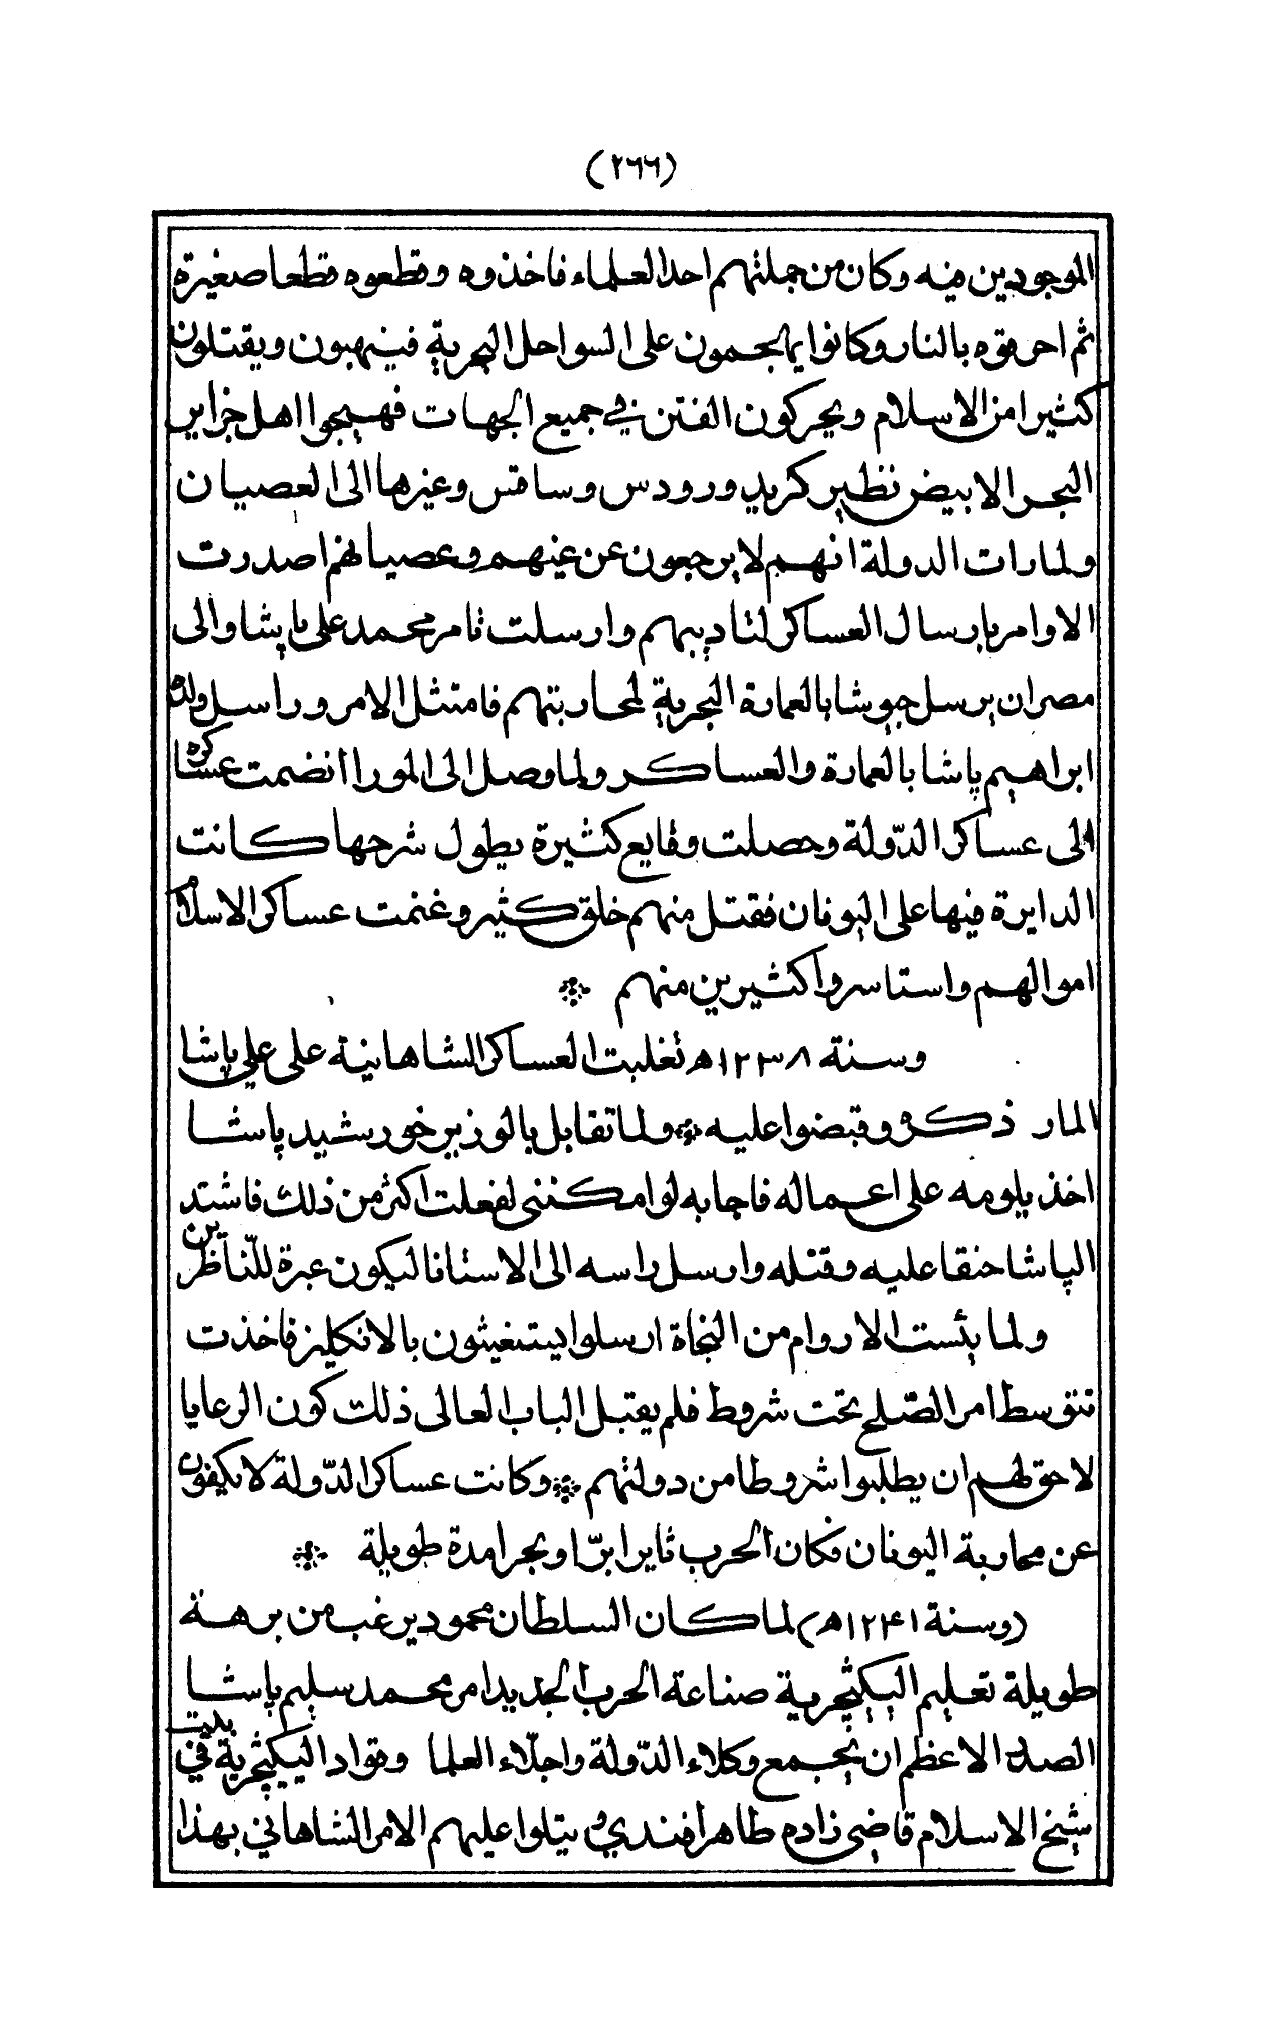 (٢٦٦)
الموجودين فيه وكان من جملتهم احد العلماء فاخذوه وقطعوه قطعا صغيرة
ثم احرقوه بالنار وكانوا يهجمون على السواحل البحرية فينهبون ويقتلون
كثيرا من الاسلام ويحركون الفتن في جميع الجهات فهيجوا اهل جزاير
البحر الابيض نظير كريد ورودس وساقس وغيرها الى العصيان
ولما رات الدولة انهم لا يرجعون عن غيهم وعصيانهم اصدرت
الاوامر بارسال العساكر لتاديبهم وارسلت تامر محمد علي پاشا والى
مصر ان يرسل جيوشا بالعمارة البحرية لمحاربتهم فامتثل الامر وراسل ولده
ابراهيم پاشا بالعمارة والعساكر ولما وصل الى المورا انضمت عساكره
الى عساكر الدّولة وحصلت وقايع كثيرة يطول شرحها كانت
الدايرة فيها على اليونان فقتل منهم خلق كثير وغنمت عساكر الاسلام
اموالهم واستاسروا كثيرين منهم
وسنة ١٢٣٨ﻫ تغلبت العساكر الشاهانية على علي پاشا
المار ذكره وقبضوا عليه ولما تقابل بالوزير خورشيد پاشا
اخذ يلومه على اعماله فاجابه لو امكنني لفعلت اكثر من ذلك فاشتد
الپاشا حنقا عليه وقتله وارسل راسه الى الاستانا ليكون عبرة للنّاظرين
ولما يئست الاروام من النجاة ارسلوا يستغيثون بالانكليز فاخذت
تتوسط امر الصّلح تحت شروط فلم يقبل الباب العالى ذلك كون الرعايا
لا حق لهم ان يطلبوا شروطا من دولتهم وكانت عساكر الدّولة لا يكفون
عن محاربة اليونان فكان الحرب ثايرا برّا وبحرا مدة طويلة
(وسنة ١٢٤١ﻫ) لما كان السلطان محمود يرغب من برهة
طويلة تعليم اليكيچرية صناعة الحرب الجديد امر محمد سليم پاشا
الصدر الاعظم ان يجمع وكلاء الدّولة واجلّاء العلما وقواد اليكيچرية في بيت
شيخ الاسلام قاضي زاده طاهر افندي و يتلوا عليهم الامر الشاهاني بهذا